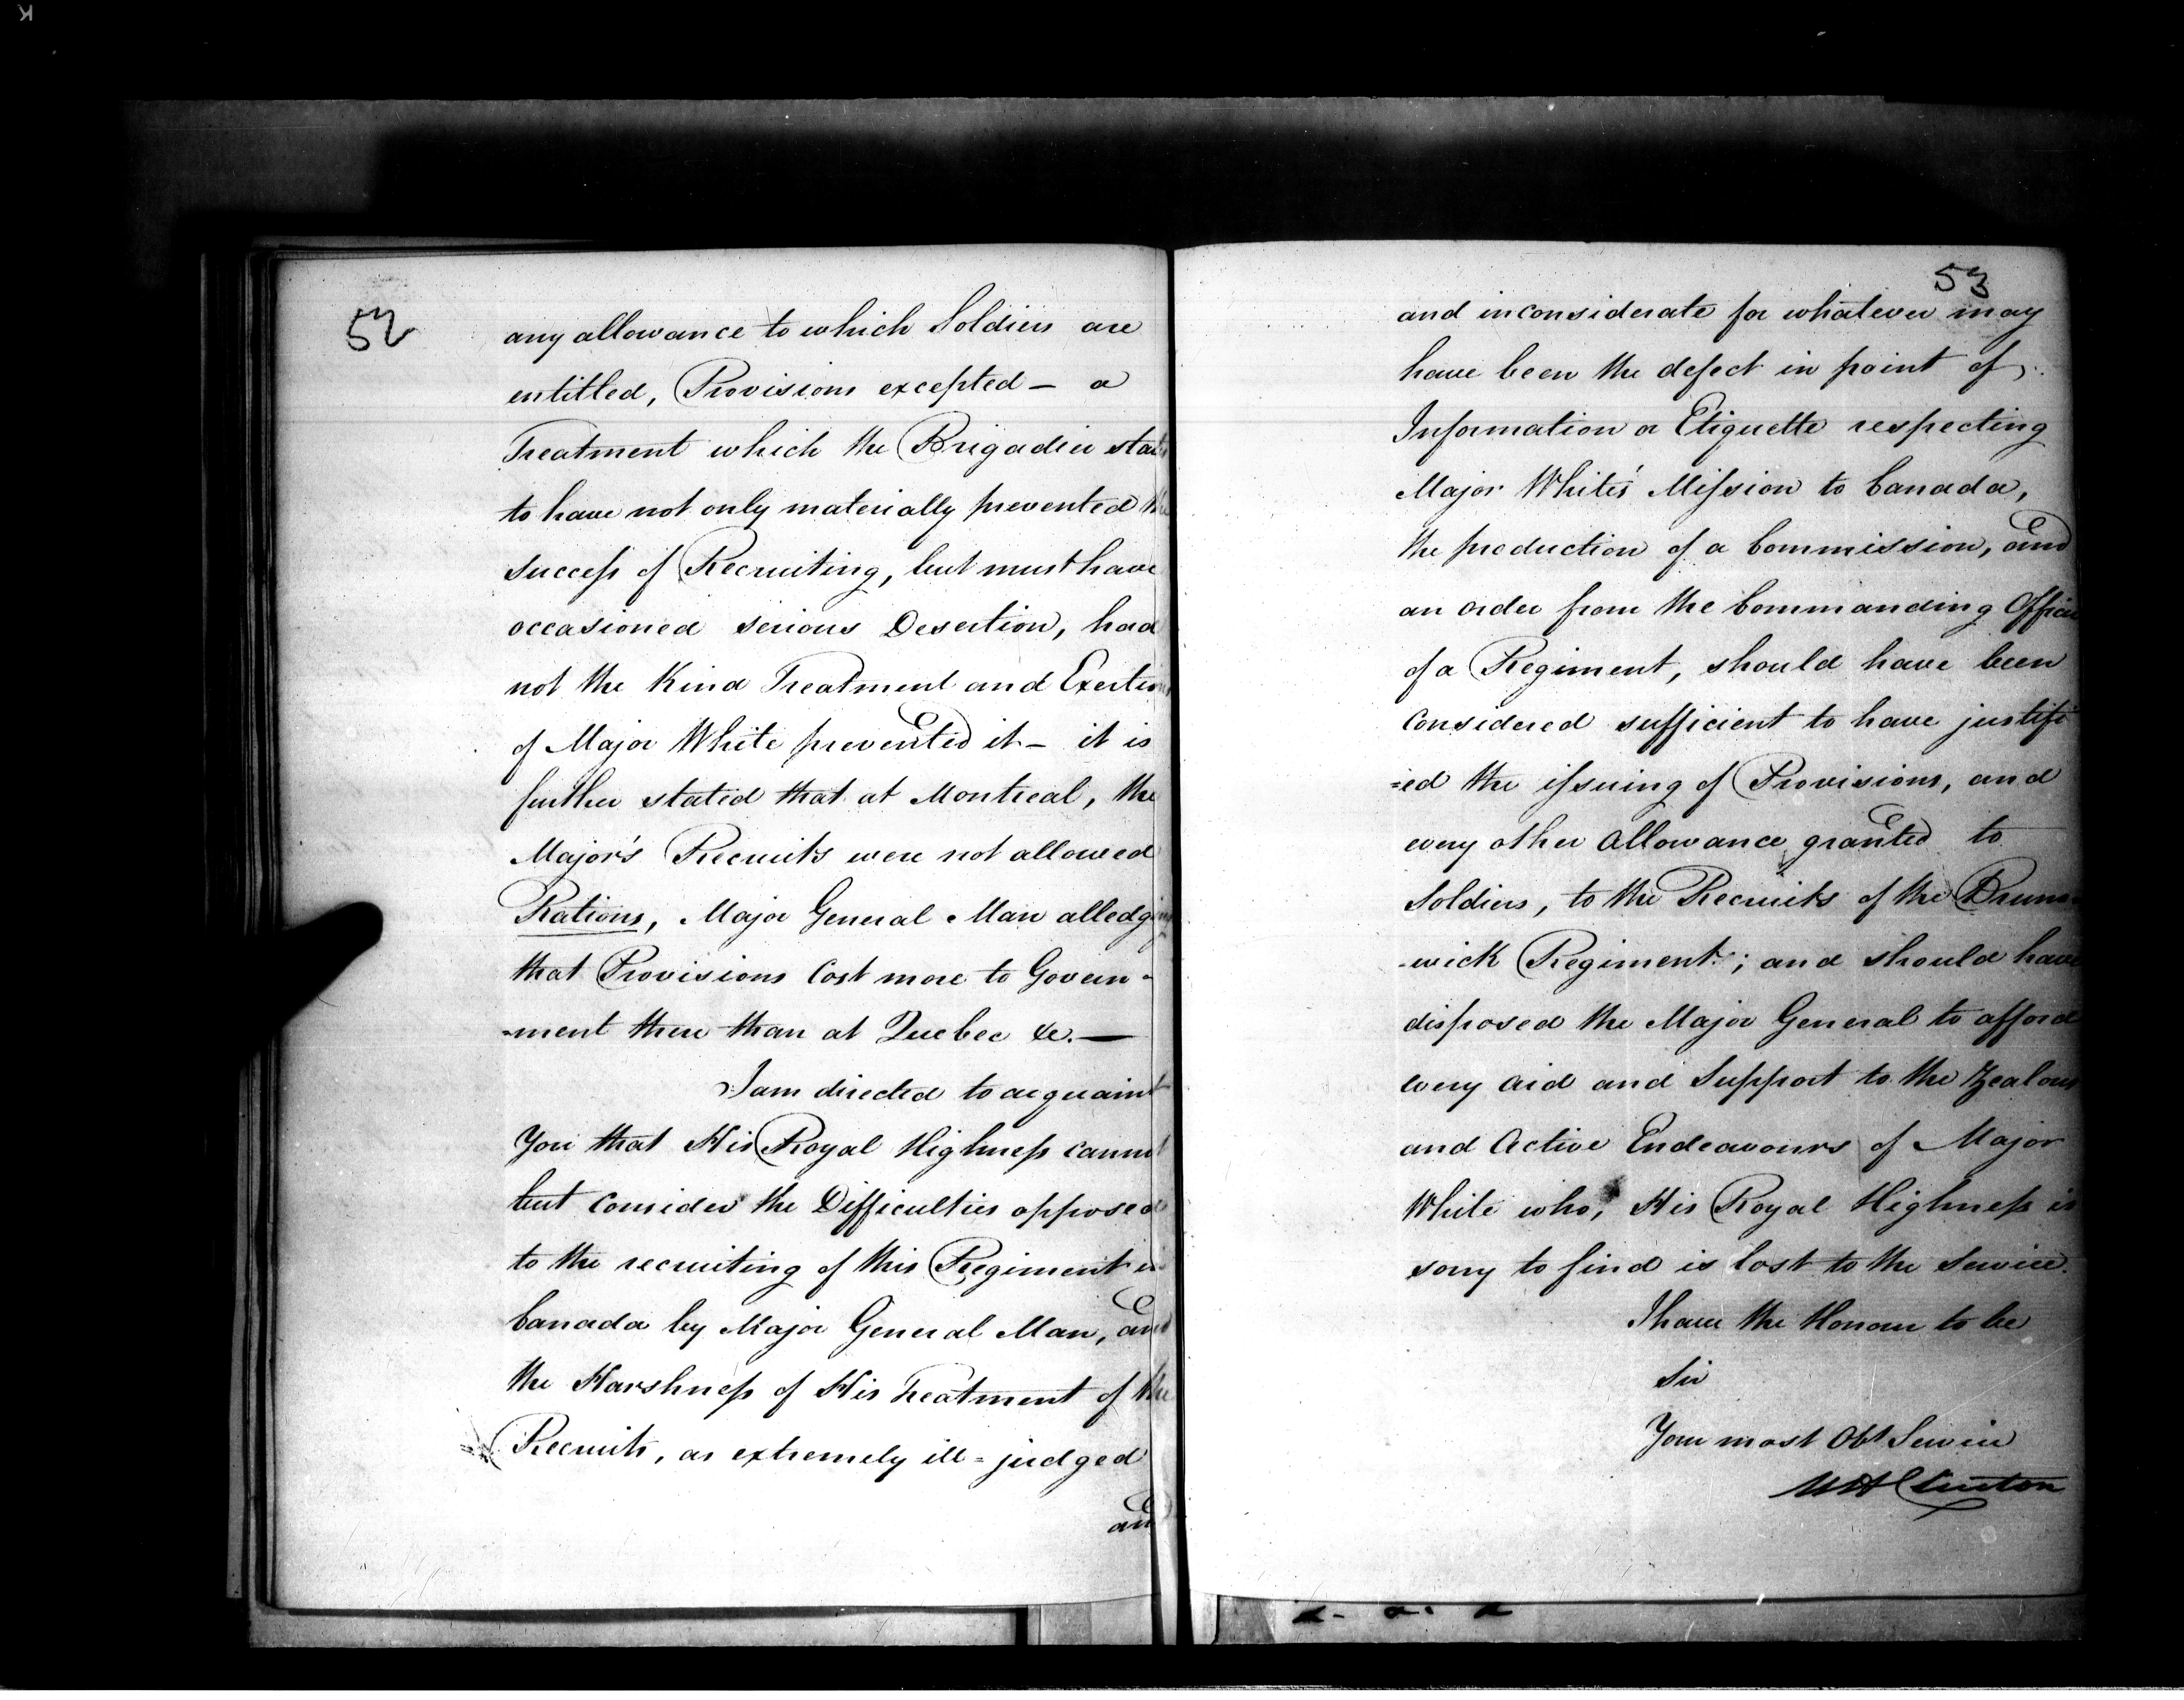 52
any allowance to which Soldiers are
entitled, Provisions excepted – a
Treatment which the Brigadier states
to have not only materially prevented the
success of Recruiting, but must have
occasioned serious Desertion, had
not the Kind Treatment and Exertions
of Major White prevented it – it is
further stated that at Montreal, the
Major's Recruits were not allowed
Rations, Major General Man alledging
that Provisions Cost more to Govern-
-ment there than at Quebec &c. —
I am directed to acquaint
You that His Royal Highness cannot
but consider the Difficulties opposed
to the recruiting of this Regiment in
Canada by Major General Man, and
the Harshness of His Treatment of the
Recruits, as extremely ill=judged
and
53
and inconsiderate for whatever may
have been the defect in point of
Information or Etiquette respecting
Major White's Mission to Canada,
the production of a Commission, and
an order from the Commanding Officer
of a Regiment, should have been
considered sufficient to have justifi
=ed the issuing of Provisions, and
every other allowance granted to
Soldiers, to the Recruits of the Bruns-
-wick Regiment; and should have
disposed the Major General to afford
every aid and Support to the Zealous
and Active Endeavours of Major
White who, His Royal Highness is
sorry to find is lost to the Service.
I have the Honour to be
Sir
Your most Obt Servt
WH Clinton